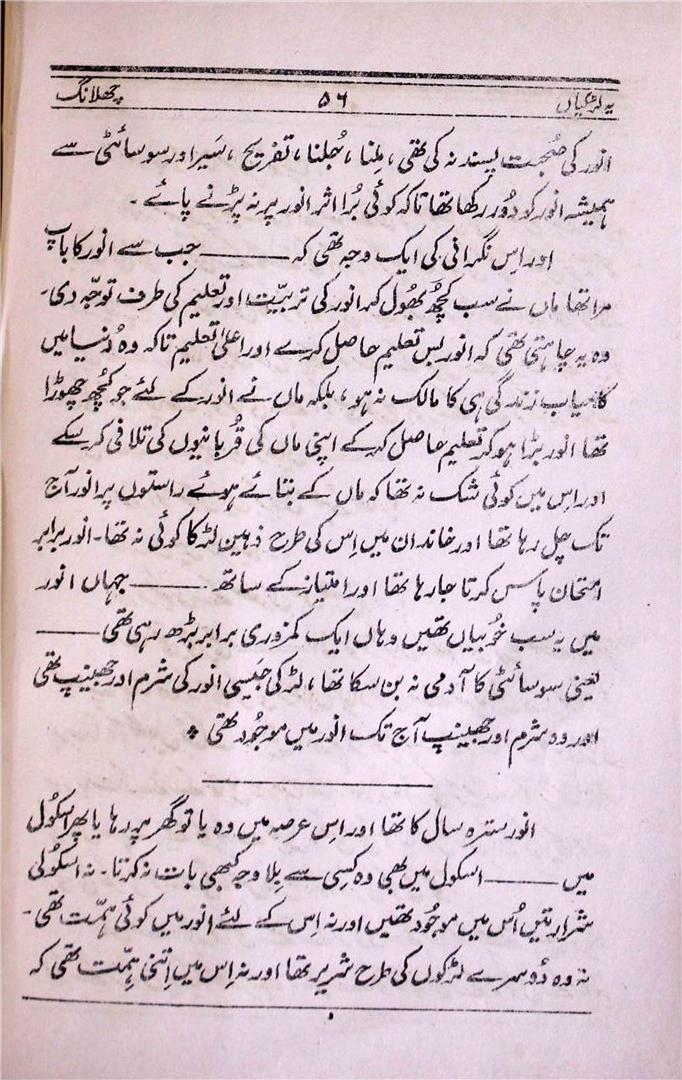 یہ لڑکیاں ۵۶ چھلانگ
انور کی صُحبت پسند نہ کی تھی، مِلنا، جُلنا، تفریح، سَیر اور سوسائٹی سے
ہمیشہ انور کو دُور رکھا تھا تاکہ کوئی بُرا اثر انور پر نہ پڑنے پائے۔
اور اِس نگرانی کی ایک وجہ تھی کہ ——— جب سے انور کا باپ
مرا تھا ماں نے سب کچھ بھُول کر انور کی تربیّت اور تعلیم کی طرف توجّہ دی۔
وہ یہ چاہتی تھی کہ انور بس تعلیم حاصل کرے اور اعلیٰ تعلیم تاکہ وہ دُنیا میں
کامیاب زندگی ہی کا مالک نہ ہو، بلکہ ماں نے انور کے لئے جو کُچھ چھوڑا
تھا انور بڑا ہو کر تعلیم حاصل کر کے اپنی ماں کی قُربانیوں کی تلافی کر سکے
اور اس میں کوئی شک نہ تھا کہ ماں کے بتائے ہوئے راستوں پر انور آج
تک چل رہا تھا اور خاندان میں اِس کی طرح ذہین لڑکا کوئی نہ تھا۔ انور برابر
امتحان پاس کرتا جا رہا تھا اور امتیاز کے ساتھ ——— جہاں انور
میں یہ سب خُوبیاں تھیں وہاں ایک کمزوری برابر بڑھ رہی تھی ———
یعنی سوسائٹی کا آدمی نہ بن سکا تھا، لڑکی جَیسی انور کی شرم اور جھینپ تھی
اور وہ شرم اور جھینپ آج تک انور میں موجُود تھی ٭
انور سترہ سال کا تھا اور اِس عرصہ میں وہ یا تو گھر پر رہا یا پھر اسکول
میں ——— اسکول میں بھی وہ کِسی سے بِلا وجہ کبھی بات نہ کرتا۔ نہ اسکُولی
شرارتیں اُس میں موجُود تھیں اور نہ اِس کے لئے انور میں کوئی ہمّت تھی۔
نہ وہ دُوسرے لڑکوں کی طرح شریر تھا اور نہ اِس میں اِتنی ہِمّت تھی کہ